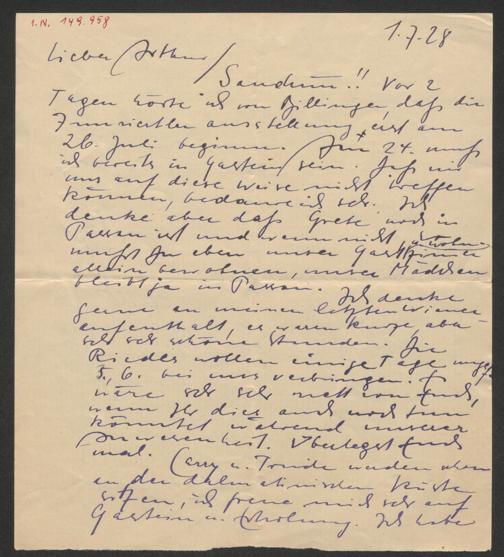 I.N. 149.958
1.7.28
Lieber Arthur,
Sandrum!! Vor 2
Tagen hörte ich von Billinger, daß die
Innviertler ausstellung erst am
26. Juli beginnt. Am 24. muß
ich bereits in Gastein sein. Daß wir
uns auf diese Weise nicht treffen
können, bedaure ich sehr. Ich
denke aber daß Grete noch in
Passau ist und wenn nicht,
mußt Du eben unser Gastzimmer
allein bewohnen, unser Mädchen
bleibt ja in Passau. Ich denke
gerne an meinen letzten Wiener
aufenthalt, es waren kurze, aber
sehr sehr schöne Stunden. Die
Riedls wollen einige Tage
5, 6. bei uns verbringen. Es
wäre sehr sehr nett von Euch,
wenn Ihr dies auch noch tun
könntet während unserer
Anwesenheit. Überlegt Euch
mal. Carry u. Trude werden
an der dalmatinischen Küste
sitzen, ich freue mich sehr auf
Gastein u. Erholung. Ich habe